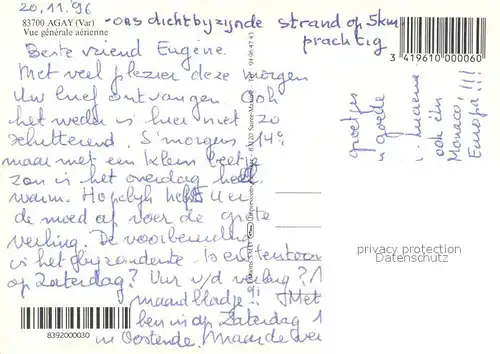 20.11.96
83700 AGAY (Var)
Vue générale aérienne
-ons dichtbyzijnde strand op 5km
prachtig
3 419610 000060
Beste vriend Eugène.
Met veel plezier deze morgen
Uw brief ontvangen. Ook
het weder is hier niet zo
schitterend. S'morgens 14°
maar met een klein beetje
zon is het overdag heel
warm. Hopelyk hebt U er
de moed op voor de grote
veiling. De voorbereiding
is het byzonderste. Is er
op Zaterdag? Uur v/d veiling?
maandbladje!! Met
ben in op Zaterdag 1
in Oostende. Maar de
groetjes
goede
ook én
Monaco,
Europa!!!
privacy protection
Datenschutz
8392000030